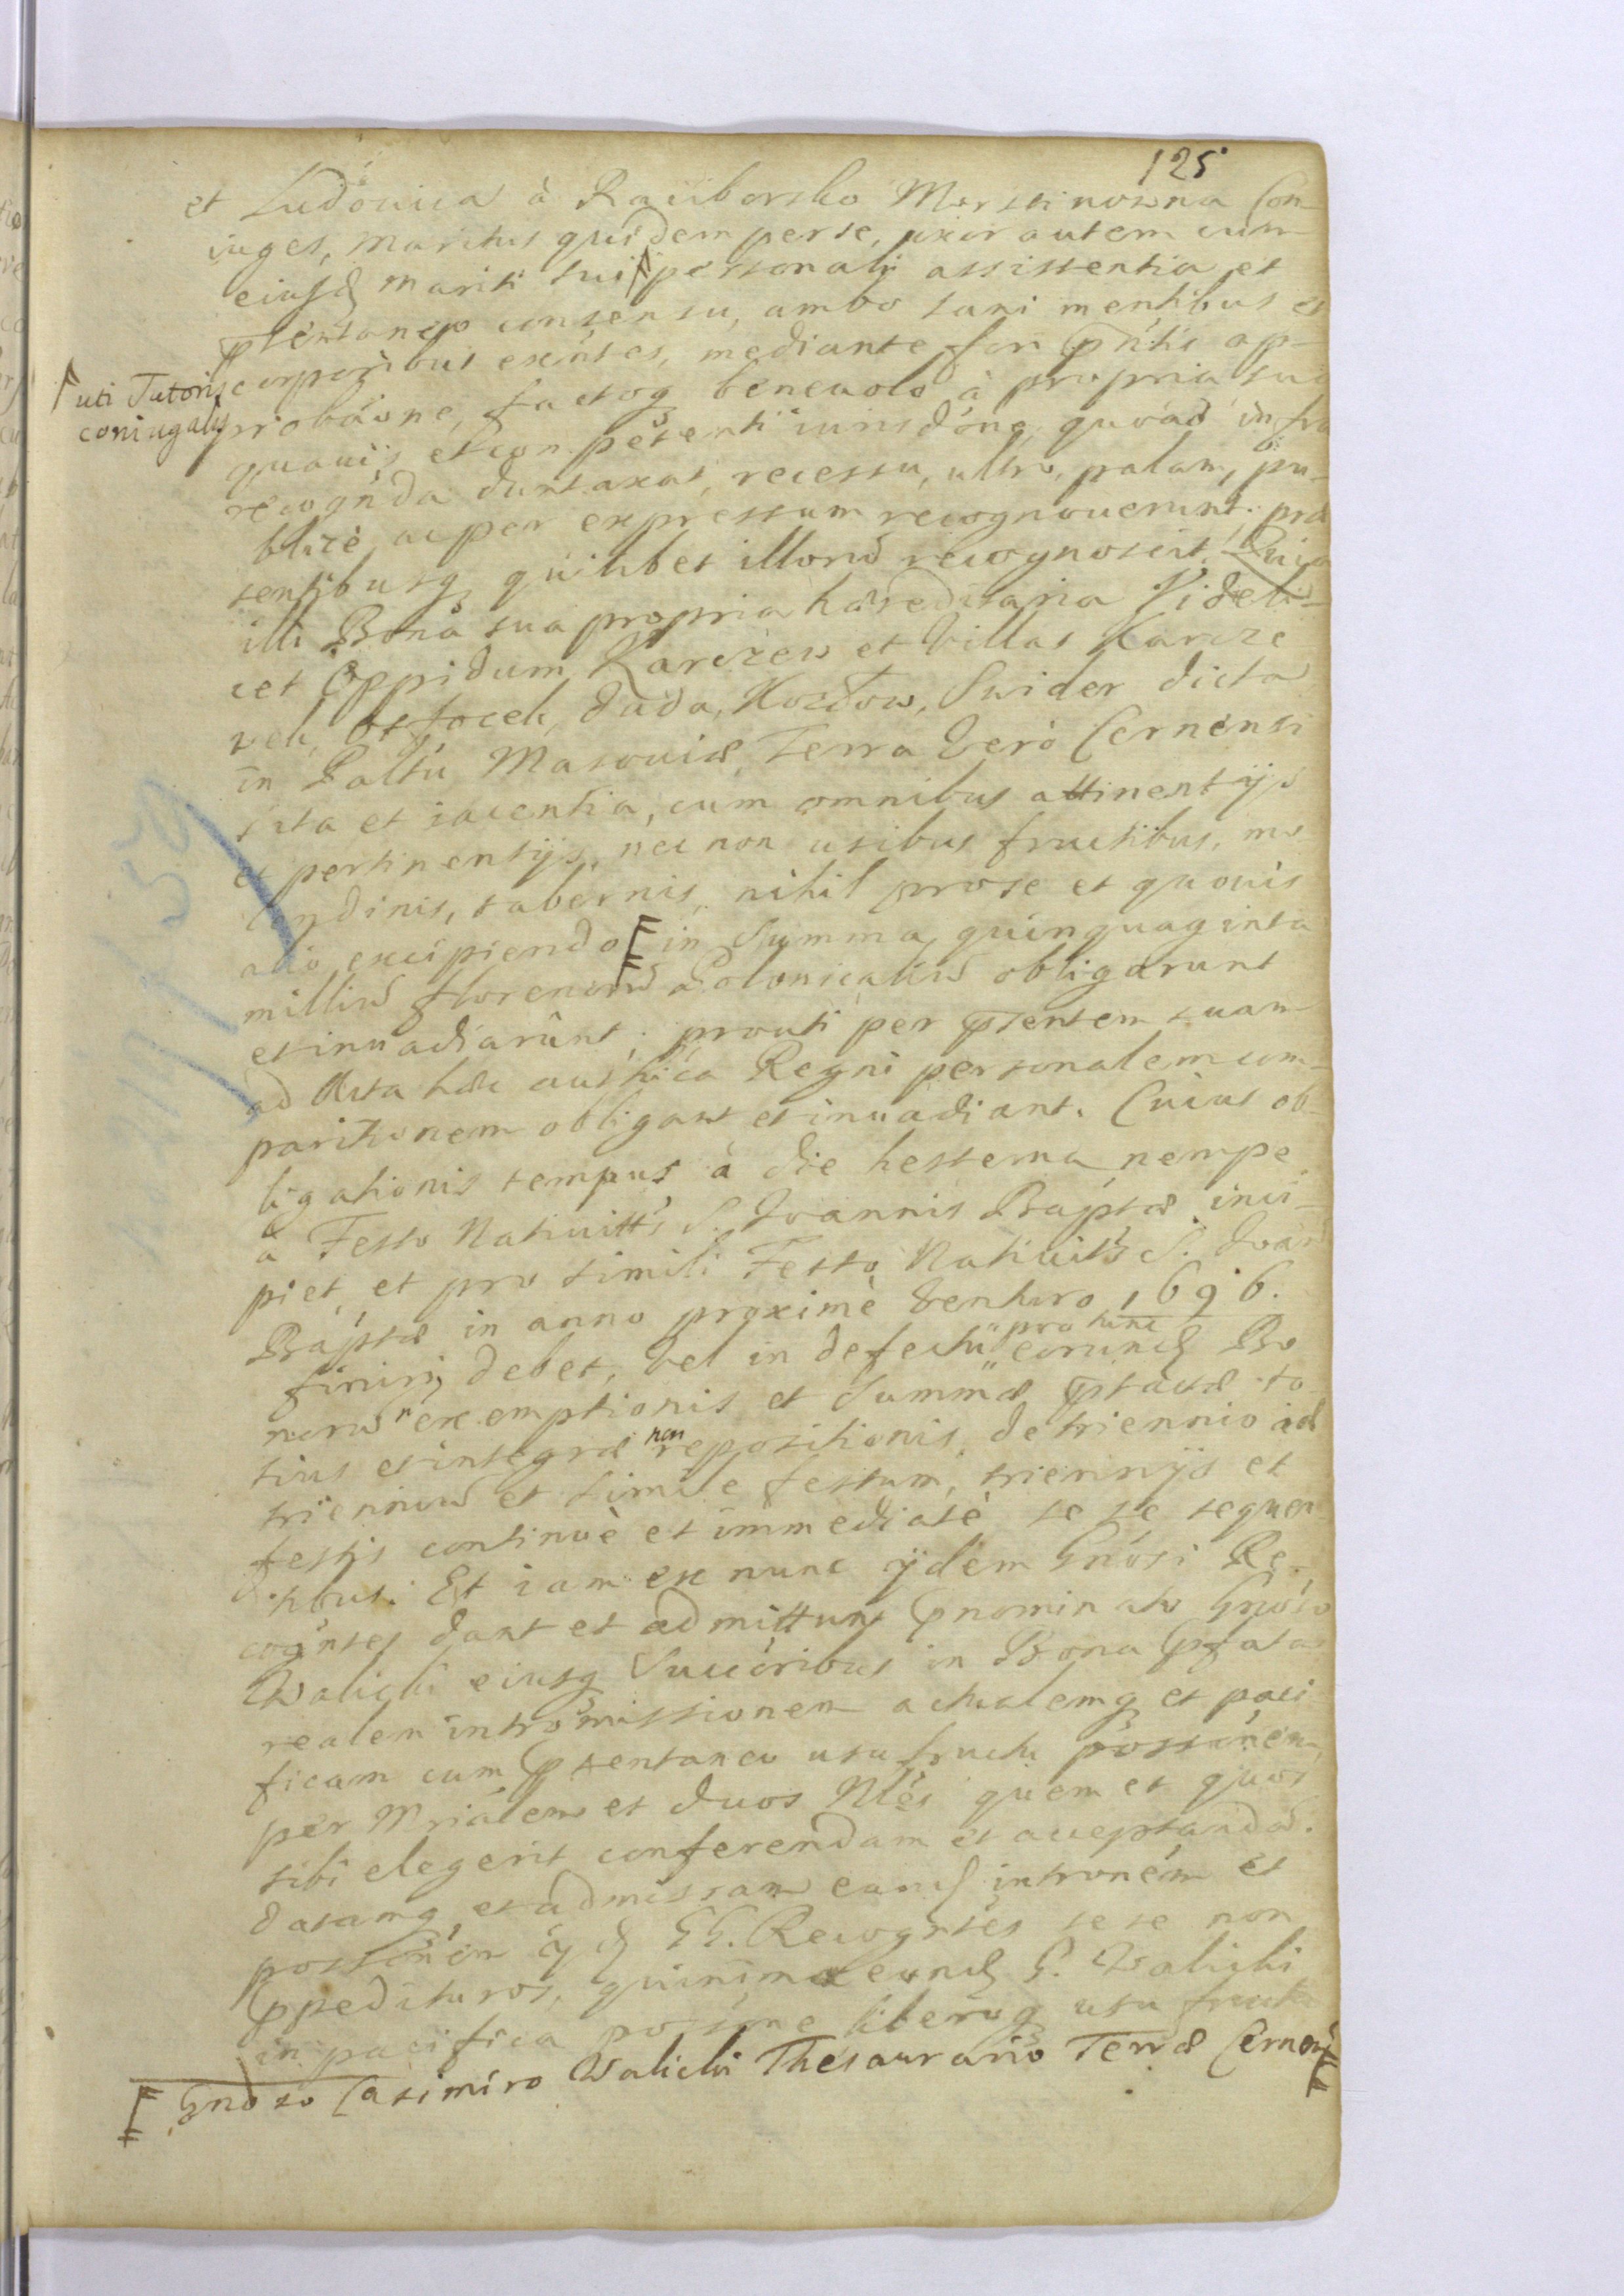 125
et Ludouica à Raciborsko Morstinowna Con-
iuges, maritus quidem per se, uxor autem cum
eiusd mariti sui personali assistentia et
pñtaneo consensu, ambo sani mentibus et
corporibus exñtes, mediante fori pñtis ap-
uti Tutoris
coniugalis
probaõne, factoq beneuolo à propria sui
quauis et competenti iurisdõne, quoad infra
recogñda duntaxat, recessu, ultro, palam, pu-
blicè ac per expressum recognouerunt, præ
sentibusq quilibet illorũ recognoscit. Quia
illi Bona sua propria hæreditaria Videli-
cet Oppidum Karczew et Villas Karcze
wek, Ostrowek, Duda, Kozłow, Swider dicta
in Paltũ Masouiæ, Terra Verò Cernensi
sita et iacentia, cum omnibus attinentijs
et pertinentijs, nec non usibus fructibus, mo
lendinis, tabernis, nihil pro se et quouis
alio excipiendo in Summa quinquaginta
milliũ florenorũ Polonicaliũ obligarunt
et inuadiarunt, prouti per pñtentem suam
ad Acta hæc authtica Regni personalem com-
paritionem obligant et inuadiant. Cuius ob-
ligationis tempus à die hesterna nempe
à Festo Natiuittis S. Joannis Baptæ inci-
piet, et pro simili Festo Natiuitts S. Joan
Baptæ in anno proximè Venturo 1696.
finiri debet, Vel in defectu pro tunc eorund Bo
norũ exemptionis et Summæ pstactæ to
tius et integræ non repositionis, de triennio ad
trienniũ et simile festum, triennijs et
festis continuè et immediatè se se sequen
tibus. Et iam ex nunc ijdem Gñosi Re-
cogñtes dant et admittunt pnominato Gñoso
Walicki eiusq Succõribus in Bona pfata
realem intromissionem actualemq et paci
ficam cum psentaneo usufructu possõnem,
per Mrialem et duos Nles quem et quos
sibi elegerit conferendam et acceptandã.
datamq et admissam eand intronem et
possõnem ijd GG. Recogñtes se se non
ppedituros, quinimo eund G. Walicki
in pacifica possõne liberoq usufructu
Gnoso Casimiro Walicki Thesaurario Terræ Cernen